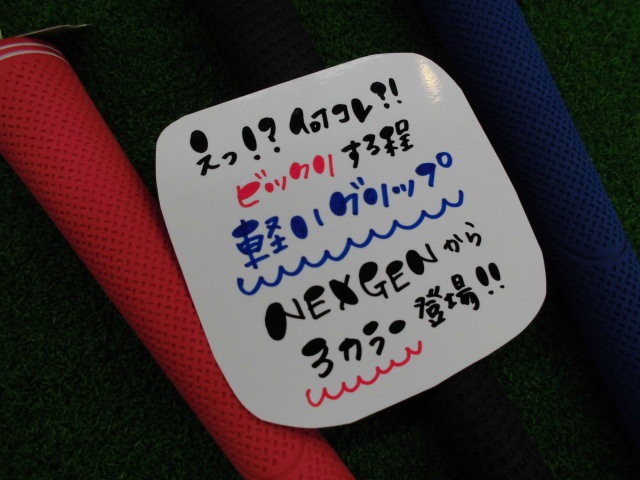 えっ!?何コレ?!
ビックリする程
軽いグリップ
NEXGENから
3カラー登場!!